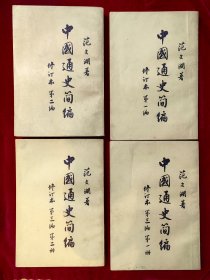 范文澜著
中國通史简编
修订本 第二编
范文澜著
中國通史简编
修订本 第一编
范文澜著
中國通史简编
修订本 第三编 第二册
范文澜著
中國通史简编
修订本 第三编 第一册